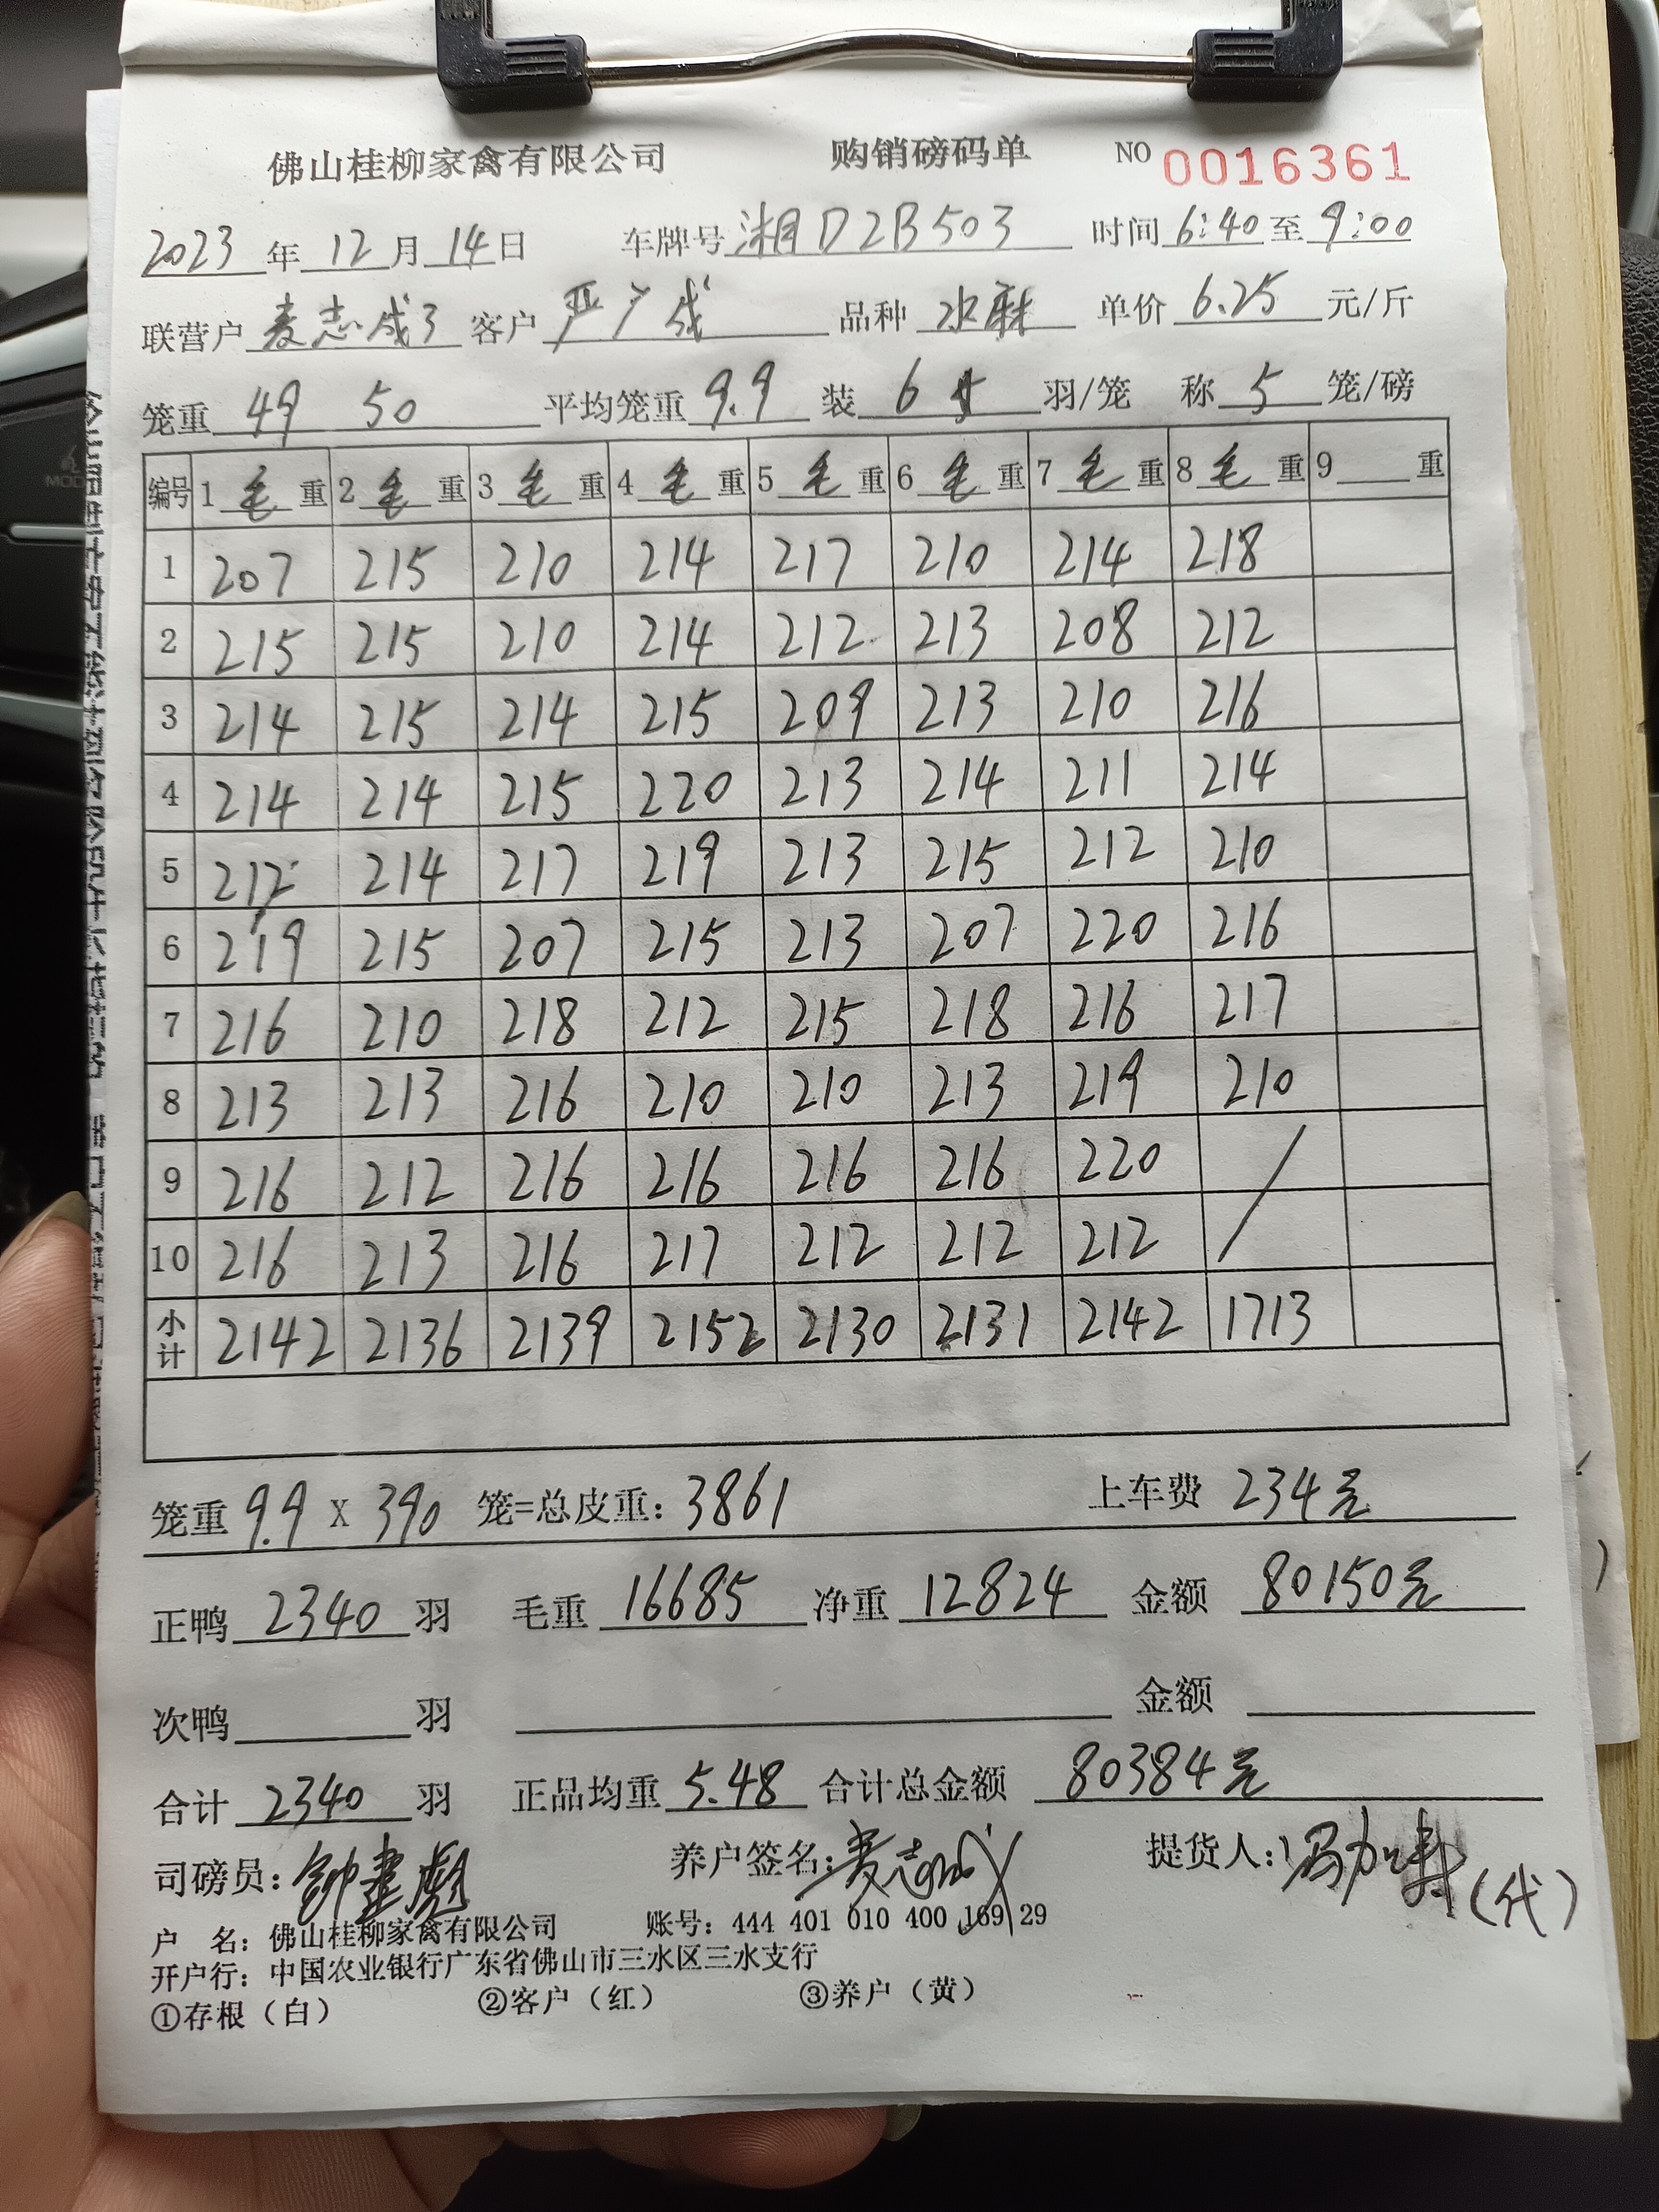 佛山桂柳家禽有限公司 购销磅码单 NO 0016361
2023年12月14日 车牌号 湘D2B503 时间 6:40 至 9:00
联营户 麦志成3 客户 严广成 品种 水麻 单价 6.25 元/斤
笼重 49 50 平均笼重 9.9 装 6 羽/笼 称 5 笼/磅
编号 1 毛 重 2 毛 重 3 毛 重 4 毛 重 5 毛 重 6 毛 重 7 毛 重 8 毛 重 9 重
1 207 215 210 214 217 210 214 218
2 215 215 210 214 212 213 208 212
3 214 215 214 215 209 213 210 216
4 214 214 215 220 213 214 211 214
5 212 214 217 219 213 215 212 210
6 219 215 207 215 213 207 220 216
7 216 210 218 212 215 218 216 217
8 213 213 216 210 210 213 219 210
9 216 212 216 216 216 216 220 /
10 216 213 216 217 212 212 212
小计 2142 2136 2139 2152 2130 2131 2142 1713
笼重 9.9 X 390 笼=总皮重: 3861 上车费 234元
正鸭 2340 羽 毛重 16685 净重 12824 金额 80150元
次鸭 羽 金额
合计 2340 羽 正品均重 5.48 合计总金额 80384元
司磅员: 钟建彪 养户签名: 麦志成 提货人: (代)
户 名: 佛山桂柳家禽有限公司 账号: 444 401 010 400 169 29
开户行: 中国农业银行广东省佛山市三水区三水支行
①存根（白） ②客户（红） ③养户（黄）